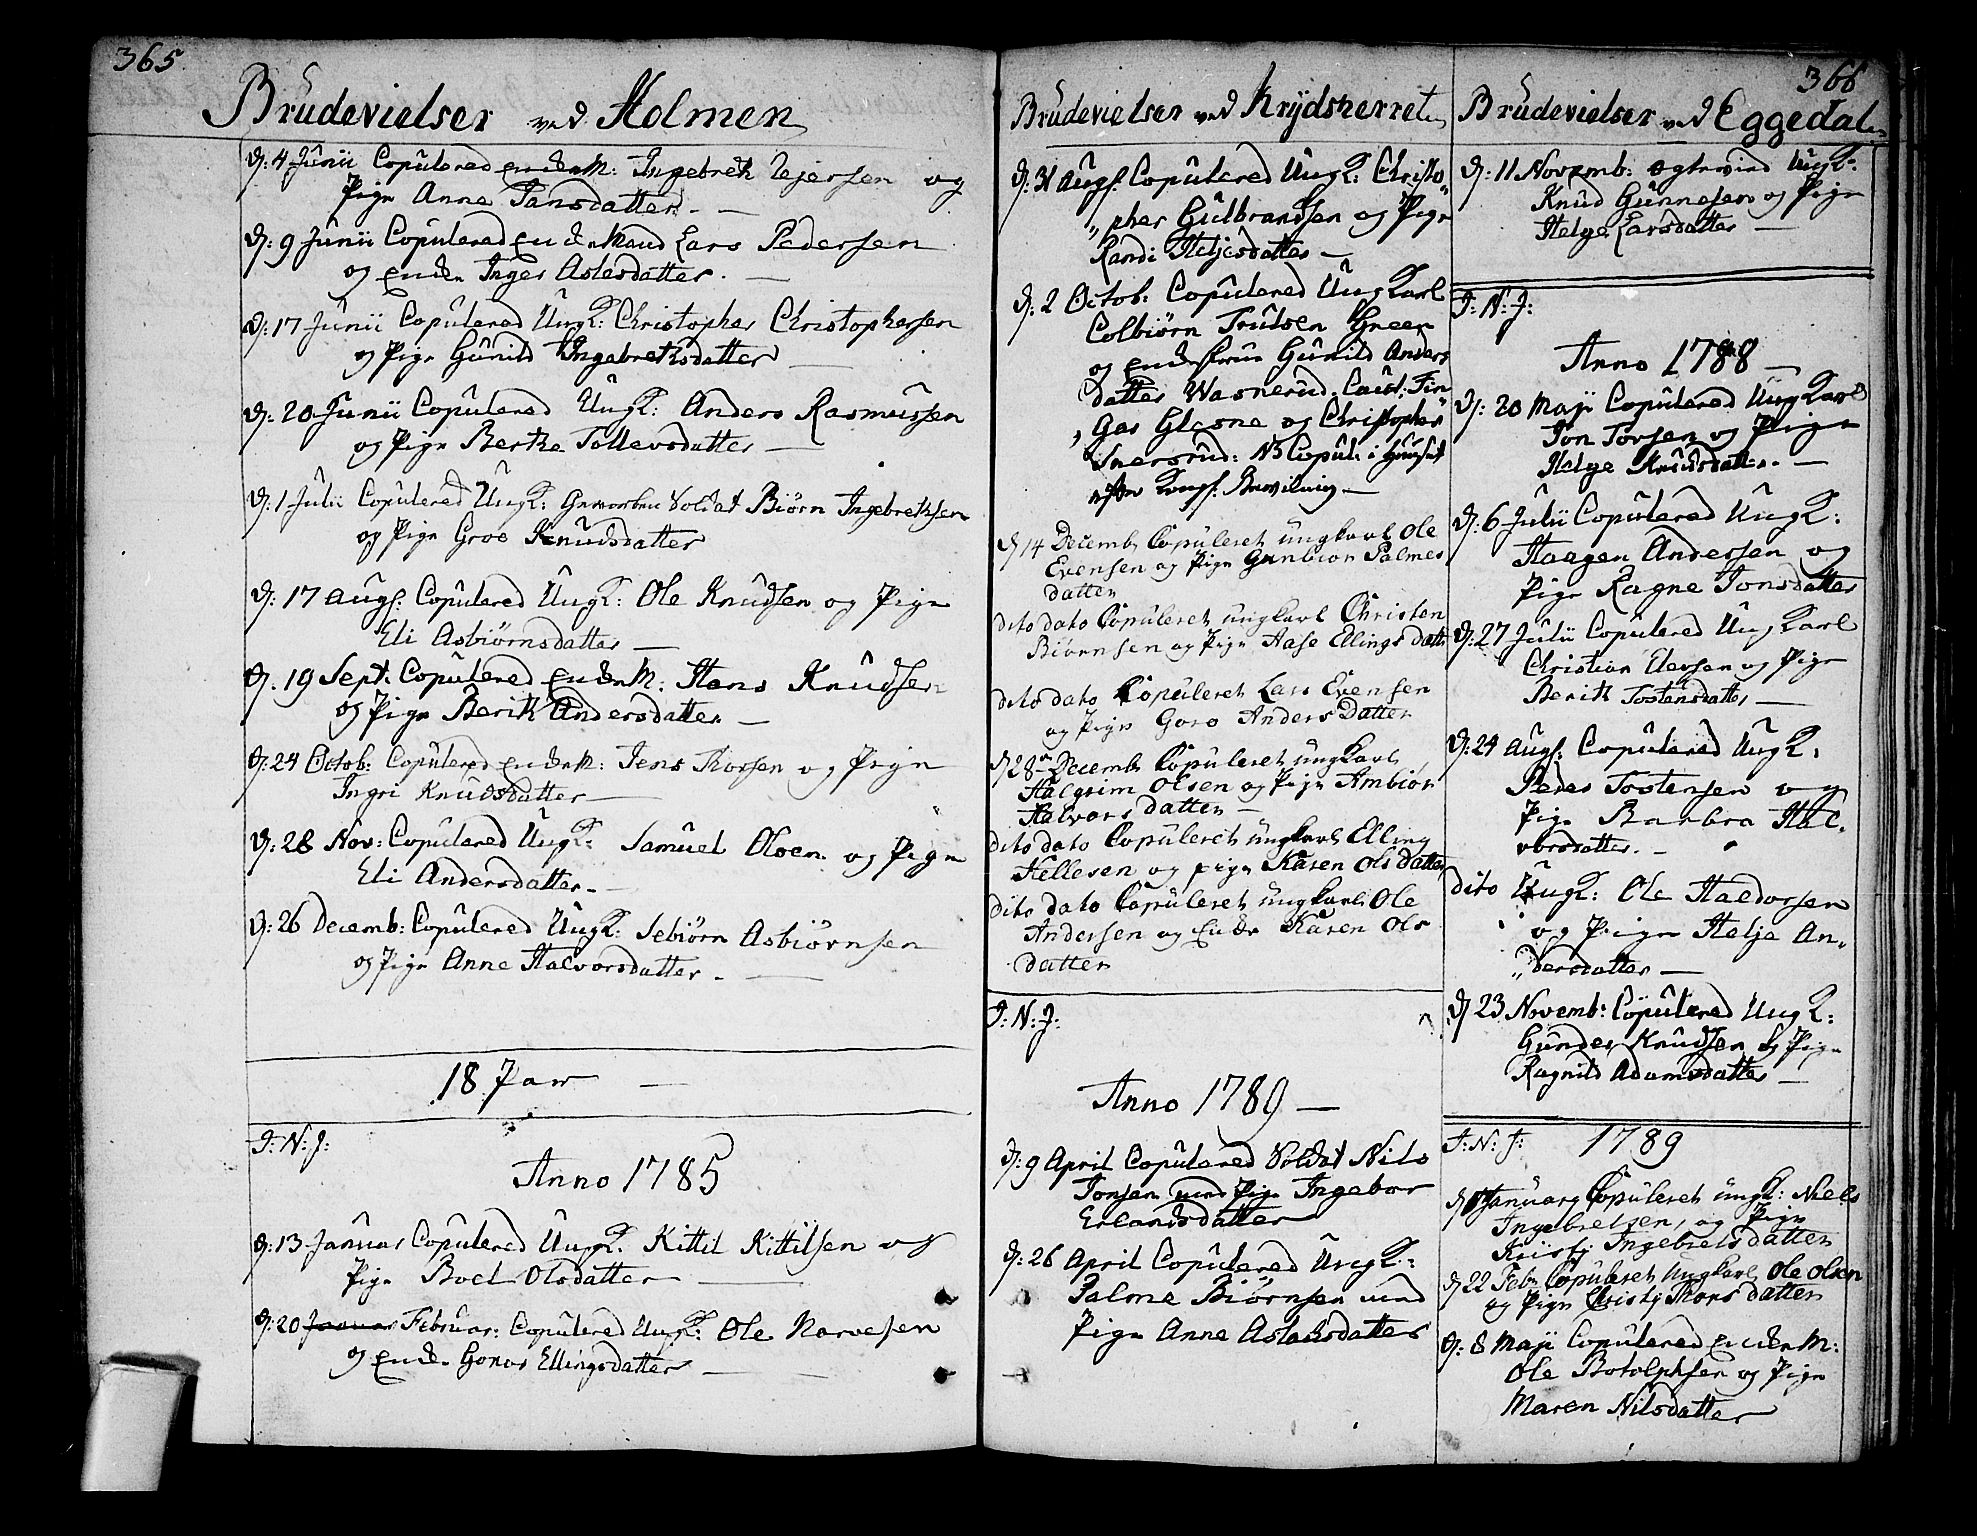 365
Brudevielser ved Holmen
D: 4 Junii Copulered EnckeM: Ingebreth Ejersen og
Pige Anne Jansdatter. —
D: 9 Junii Copulered Enckemand Lars Pedersen
og Encke Inger Aslesdatter. —
D: 17 Junii Copulered UngK: Christopher Christophersen
og Pige Gunild Ingebrethsdatter —
D: 20 Junii Copulered UngK: Anders Rasmussen
og Pige Berthe Tollevsdatter —
D: 1 Julii Copulered UngK: Geworben Soldat Biørn Ingebrethsen
og Pige Groe Knudsdatter
D: 17 Augs: Copulered UngK: Ole Knudsen og Pige
Eli Asbiørnsdatter —
D: 19 Sept: Copulered EnckeM: Hans Knudsen
og Pige Berith Andersdatter —
D: 24 Octob: Copulered EnckeM: Jens Thorsen og Pige
Ingri Knudsdatter —
D: 28 Nov: Copulered UngK: Samuel Olsen og Pige
Eli Andersdatter. —
D: 26 Decemb: Copulered UngK: Sebiørn Asbiørnsen
og Pige Anne Halvorsdatter. —
18 Par —
I: N: J:
Anno 1785
D: 13 Januar Copulered UngK: Kittil Kittilsen og
Pige Boel Olsdatter —
D: 20 Januar Februar: Copulered UngK: Ole Narvesen
og Encke Goroe Ellingsdatter —
Brudevielser ved Krydsherret
D: 31 Augs: Copulered UngK: Christo„
„pher Gulbrandsen og Pige
Randi Heljesdatter —
D: 2 Octob: Copulered UngKarl
Colbiørn Trulsen Green
og Enckefrue Gunild Anders
datter Wasnerud. Caut: Fin„
„Gar Glesne og Christopher
Snersrud: NB Copul: i Huuset
efter Kongs: Bevilning —
D 14 Decembr Copuleret ungkarl Ole
Evensen og Pige Gunbior Palmes
datter
dito dato Copuleret ungkarl Christen
Biørnsen og Pige Aase Ellings datt
dito dato Copuleret Lars Evensen
og Pige Goro Anders Datter
D 28de Decembr Copuleret ungkarl
Halgrim Olsen og Pige Ambiør
Halvors datter —
dito dato Copuleret ungkarl Elling
Hellesen og pige Karen Ols datter
dito dato Copuleret ungkarl Ole
Andersen og Encke Karen Ols
datter
I: N: J:
Anno 1789 —
D: 9 April Copulered Soldat Nils
Jonsen med Pige Ingebor
Erlandsdatter
D: 26 April Copulered UngK:
Palme Biørnsen med
Pige Anne Aslaksdatter
366
Brudevielser ved Eggedal
D: 11 Novemb: Egtevied UngK:
Knud Gunnesen og Pige
Helge Larsdatter —
I: N: J:
Anno 1788 —
D: 20 Maji Copulered UngKarl
Jon Torsen og Pige
Helge Knudsdatter. —
D: 6 Julii Copulered UngK:
Haagen Andersen og
Pige Ragne Jonsdatter
D: 27 Julii Copulered UngKarl
Christian Elersen og Pige
Berith Tostensdatter —
D: 24 Augs: Copulered UngK:
Peder Tostensen og
Pige Barbra Hal„
vorsdatter. —
dito UngK: Ole Haldorsen
og Pige Helje An„
„dersdatter —
D 23 Novemb: Copulered UngK:
Gunder Knudsen og Pige
Ragnild Adamsdatter —
I: N: J: 1789
D Januarj Copuleret ungK: Niels
Ingebretsen, og Pige
Kristj Ingebrets datter
D 22 Febr Copuleret Ungkarl Ole Olsen
og Pige Christj Thors datter
D: 8 Maji Copulered EnckeM:
Ole Botolphsen og Pige
Maren Nilsdatter